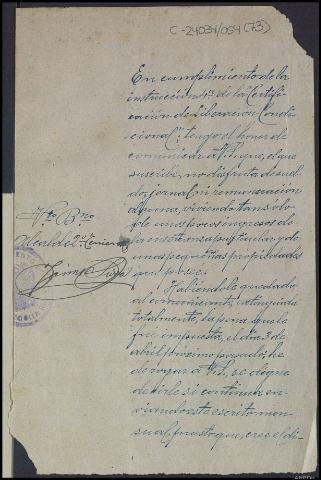 C-24034/054 (73)
En cumplimiento de la
instrucción 1ª de la "Certifi-
cación de Liberación Condi-
cional", tengo el honor de
comunicar a V.I. que, el que
suscribe, no disfruta de suel-
do, jornal ni remuneración
alguna, viviendo tan sólo
de unos pocos ingresos de
la enseñanza particular y de
unas pequeñas propiedades
que posee.
Habiéndole quedado
al comunicante, extinguida
totalmente, la pena que le
fué impuesta, el día 3 de
abril próximo pasado, he
de rogar a V.I., se digne
decirle si continua en-
viando este escrito men-
sual, puesto que, cree el di-
Vto Bno
Alcalde